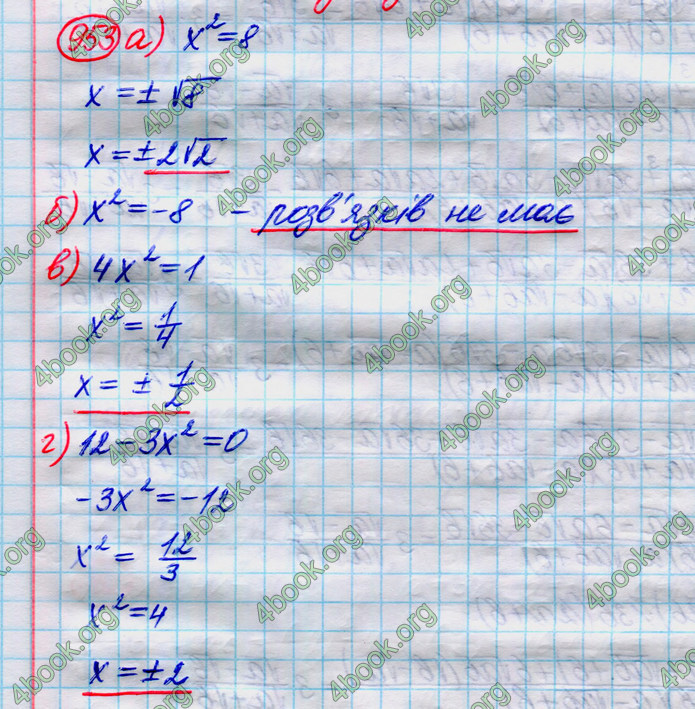 953 а) x² = 8
x = ± √8
x = ± 2√2
б) x² = -8 - розв'язків не має
в) 4x² = 1
x² = 1/4
x = ± 1/2
г) 12 - 3x² = 0
-3x² = -12
x² = 12/3
x² = 4
x = ± 2
4book.org